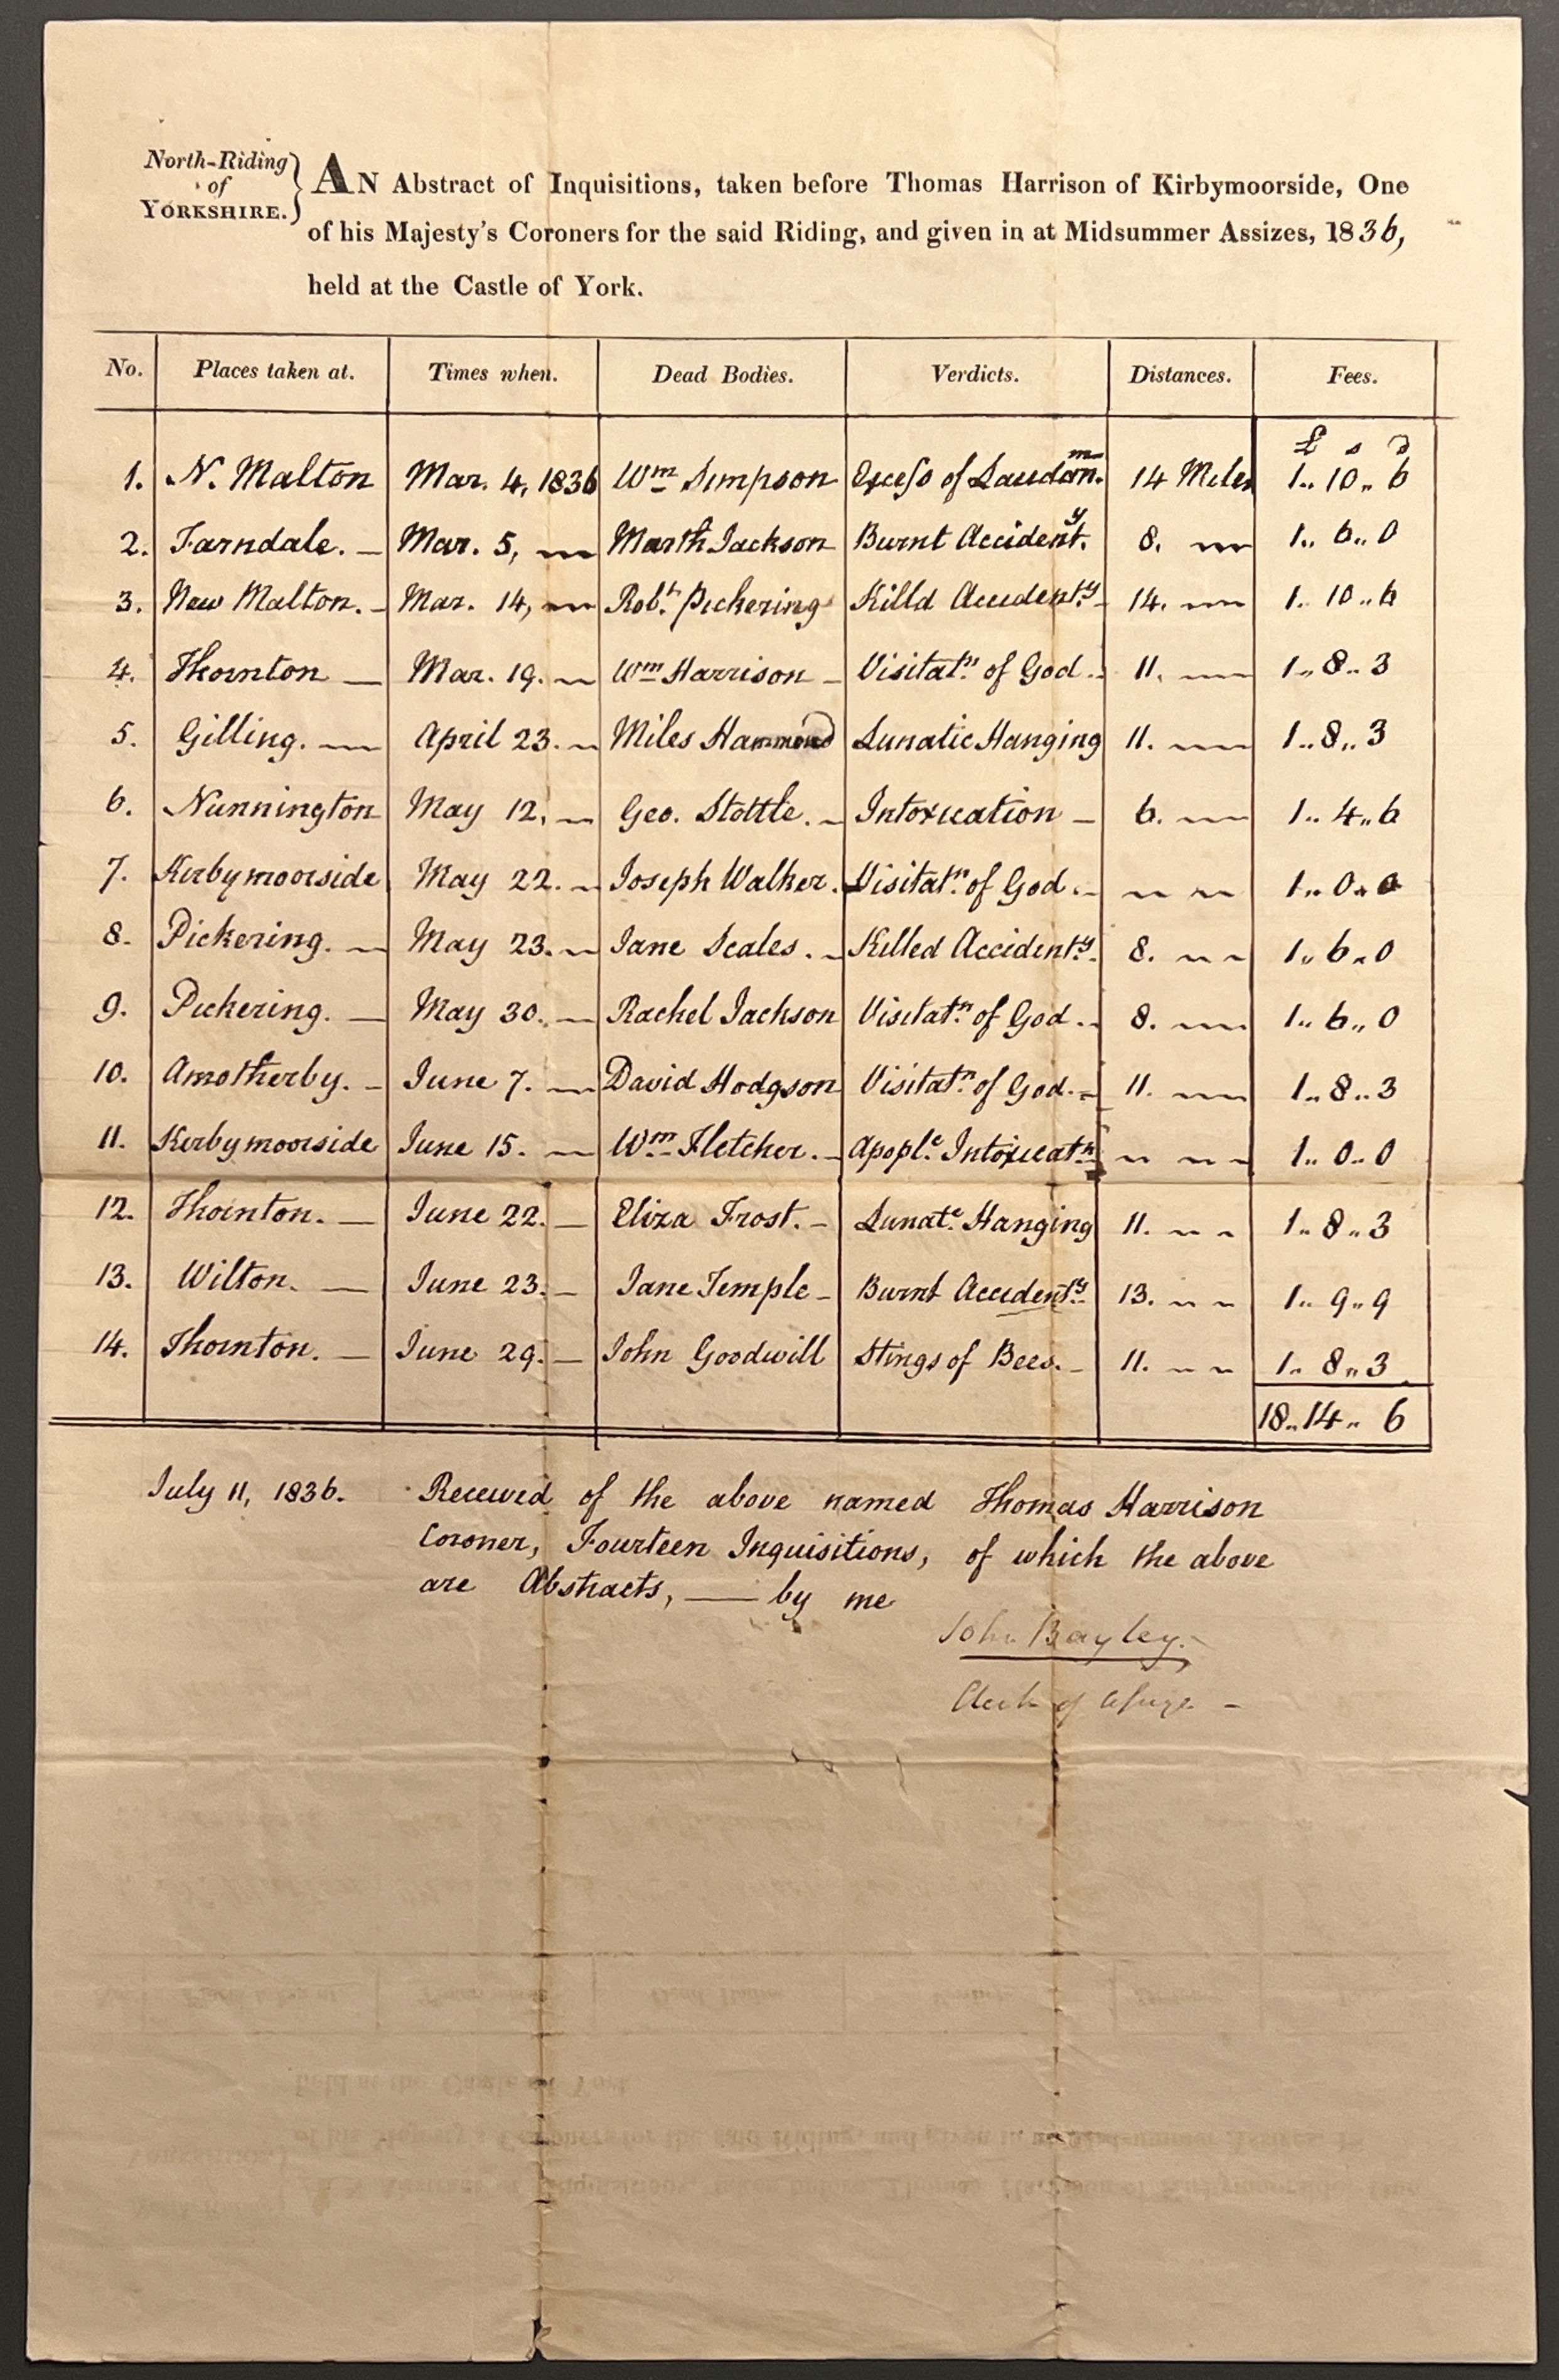 North-Riding
of
YORKSHIRE.
AN Abstract of Inquisitions, taken before Thomas Harrison of Kirbymoorside, One
of his Majesty's Coroners for the said Riding, and given in at Midsummer Assizes, 1836,
held at the Castle of York.
No. Places taken at. Times when. Dead Bodies. Verdicts. Distances. Fees.
£ s d
1. N. Malton Mar. 4, 1836 Wm Simpson Excess of Laudanm. 14 Miles 1.. 10.. 6
2. Farndale. — Mar. 5, — Marth Jackson Burnt Accidenty. 8. — 1.. 6.. 0
3. New Malton. — Mar. 14, — Robt. Pickering Killd Accidenty. 14. — 1.. 10.. 6
4. Thornton — Mar. 19. — Wm Harrison — Visitatn. of God. 11. — 1.. 8.. 3
5. Gilling. — April 23. — Miles Hammond Lunatic Hanging 11. — 1.. 8.. 3
6. Nunnington May 12. — Geo. Stottle. — Intoxication — 6. — 1.. 4.. 6
7. Kirbymoorside May 22. — Joseph Walker. Visitatn. of God. — — 1.. 0.. 0
8. Pickering. — May 23. — Jane Scales. — Killed Accidenty. 8. — 1.. 6.. 0
9. Pickering. — May 30. — Rachel Jackson Visitatn. of God. 8. — 1.. 6.. 0
10. Amotherby. — June 7. — David Hodgson Visitatn. of God. 11. — 1.. 8.. 3
11. Kirbymoorside June 15. — Wm Fletcher. — Apople. Intoxicatn — — 1.. 0.. 0
12. Thornton. — June 22. — Eliza Frost. — Lunate. Hanging 11. — 1.. 8.. 3
13. Wilton. — June 23. — Jane Temple — Burnt Accidenty. 13. — 1.. 9.. 9
14. Thornton. — June 29. — John Goodwill Stings of Bees. — 11. — 1.. 8.. 3
18.. 14.. 6
July 11, 1836. Received of the above named Thomas Harrison
Coroner, Fourteen Inquisitions, of which the above
are Abstracts, — by me
John Bayley.
Clerk of Assize —